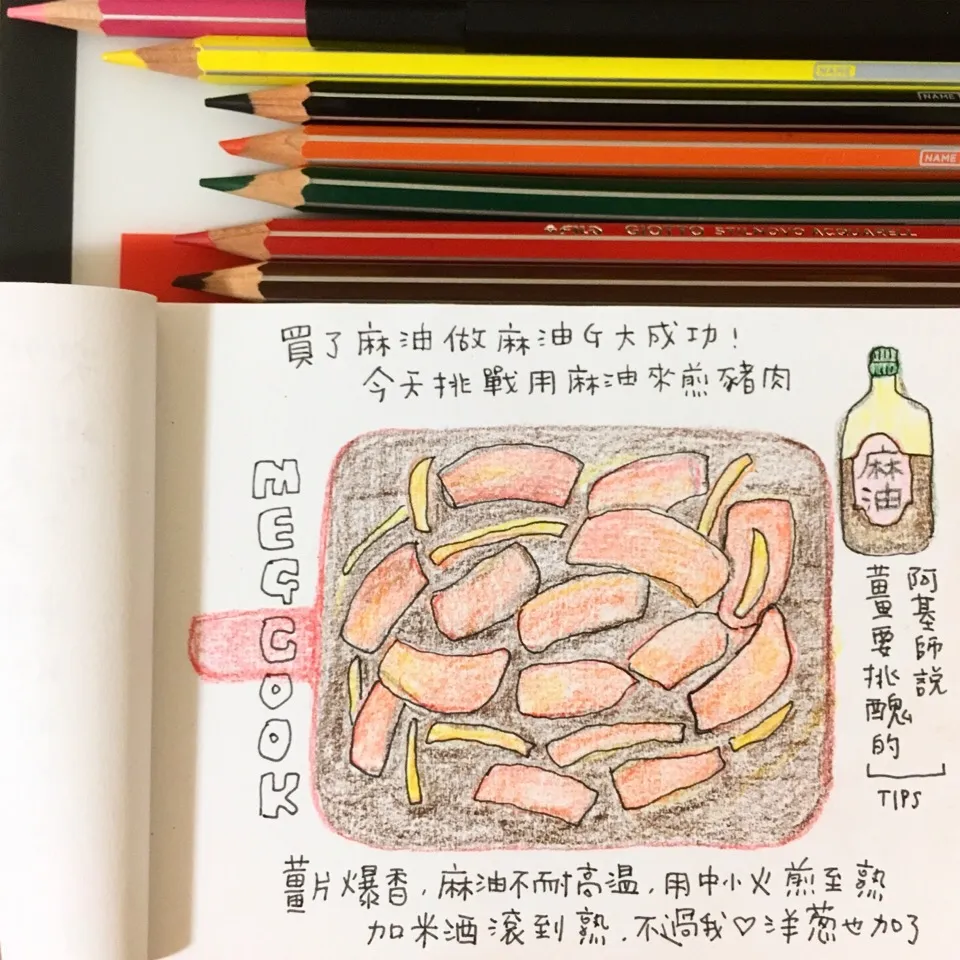 NAME
NAME
NAME
GIOTTO STILNOVO ACQUARELL
買了麻油做麻油G大成功!
今天挑戰用麻油來煎豬肉
MEGCOOK
麻油
阿基師說
薑要挑醜的
TIPS
薑片爆香,麻油不耐高温,用中小火煎至熟
加米酒滾到熟,不過我♡洋葱也加了